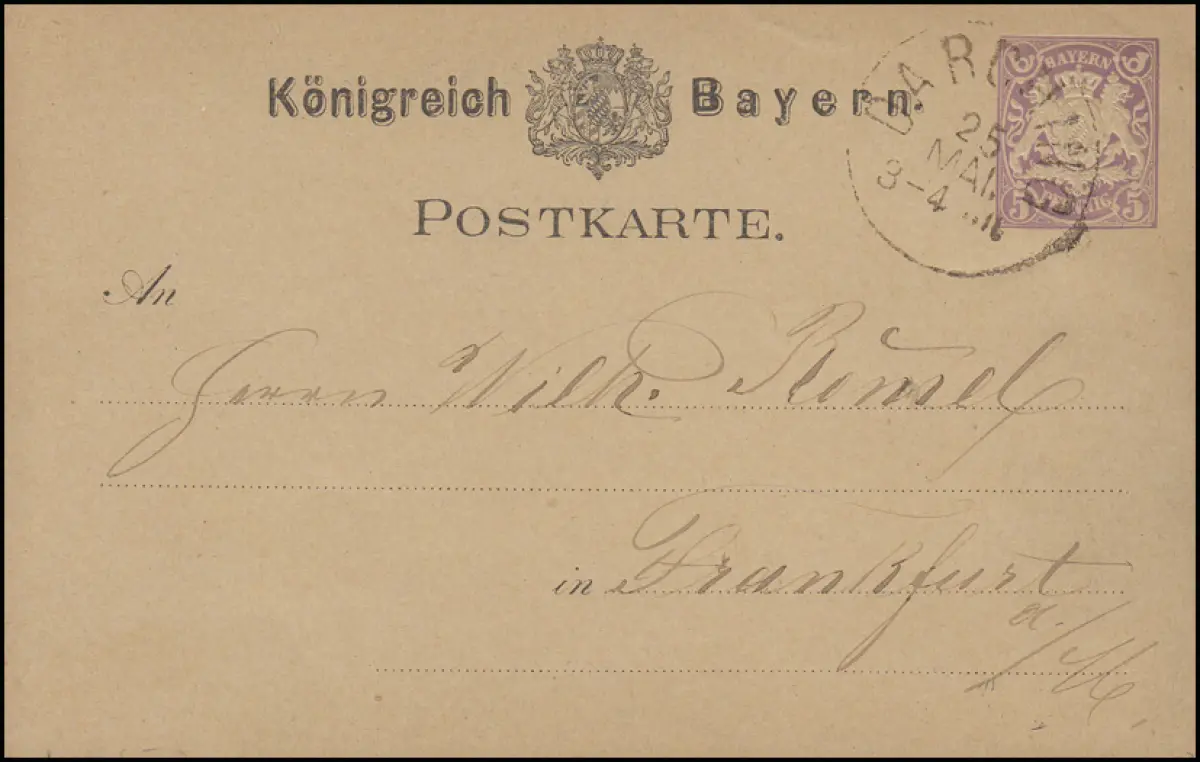 Königreich Bayern.
POSTKARTE.
BAYERN
5 5
PFENNIG
25
MAI
3-4
An
Herrn Wilh.
in Frankfurt
a/M.